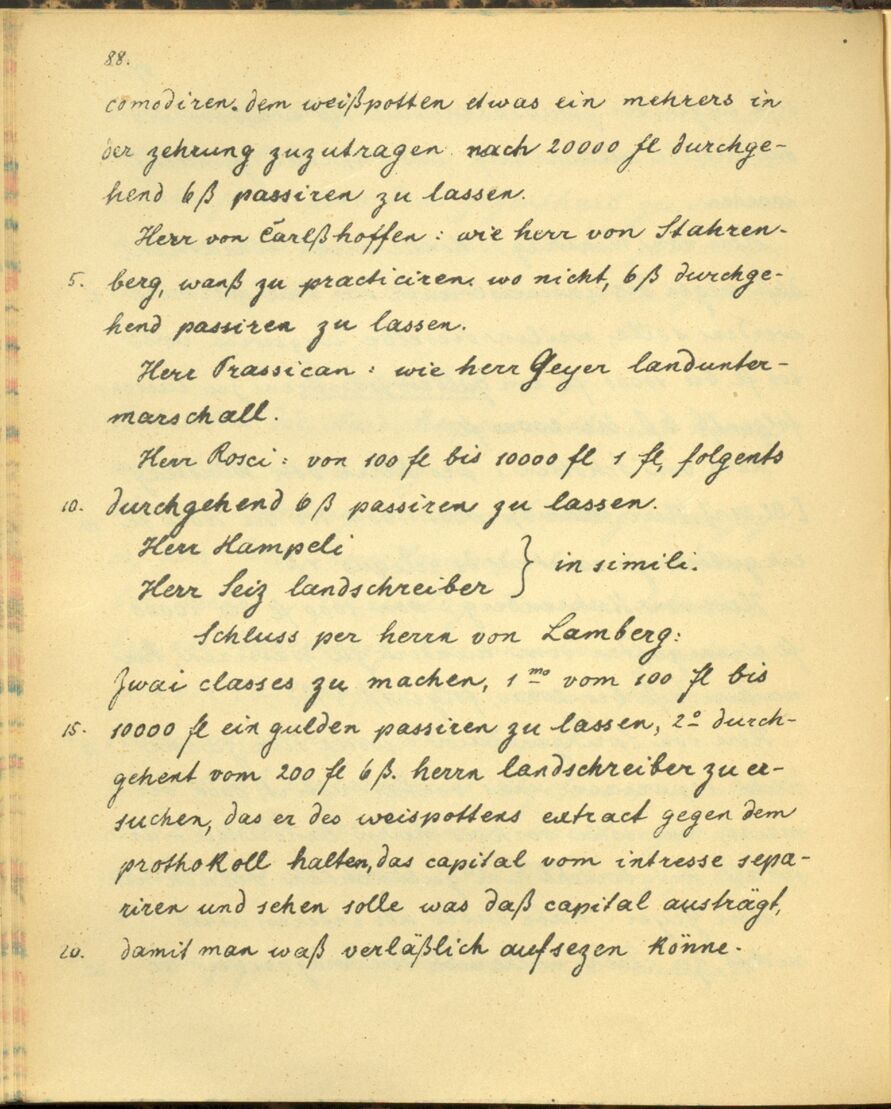 88.
comodiren. dem weißpotten etwas ein mehrers in
der zehrung zuzutragen nach 20000 fl durchge-
hend 6 ß passiren zu lassen.
Herr von Carlßhoffen: wie herr von Stahren-
5. berg, wanß zu practiciren, wo nicht, 6 ß durchge-
hend passiren zu lassen.
Herr Prassican: wie herr Geyer landunter-
marschall.
Herr Rosci: von 100 fl bis 10000 fl 1 fl, folgents
10. durchgehend 6 ß passiren zu lassen.
Herr Hampeli
Herr Seiz landschreiber } in simili.
Schluss per herrn von Lamberg:
Zwai classes zu machen, 1mo vom 100 fl bis
15. 10000 fl ein gulden passiren zu lassen, 2o durch-
gehent vom 200 fl 6 ß. herrn landschreiber zu er-
suchen, das er des weispottens extract gegen dem
prothokoll halten, das capital vom intresse sepa-
riren und sehen solle was daß capital austrägt,
20. damit man waß verläßlich aufsezen könne.